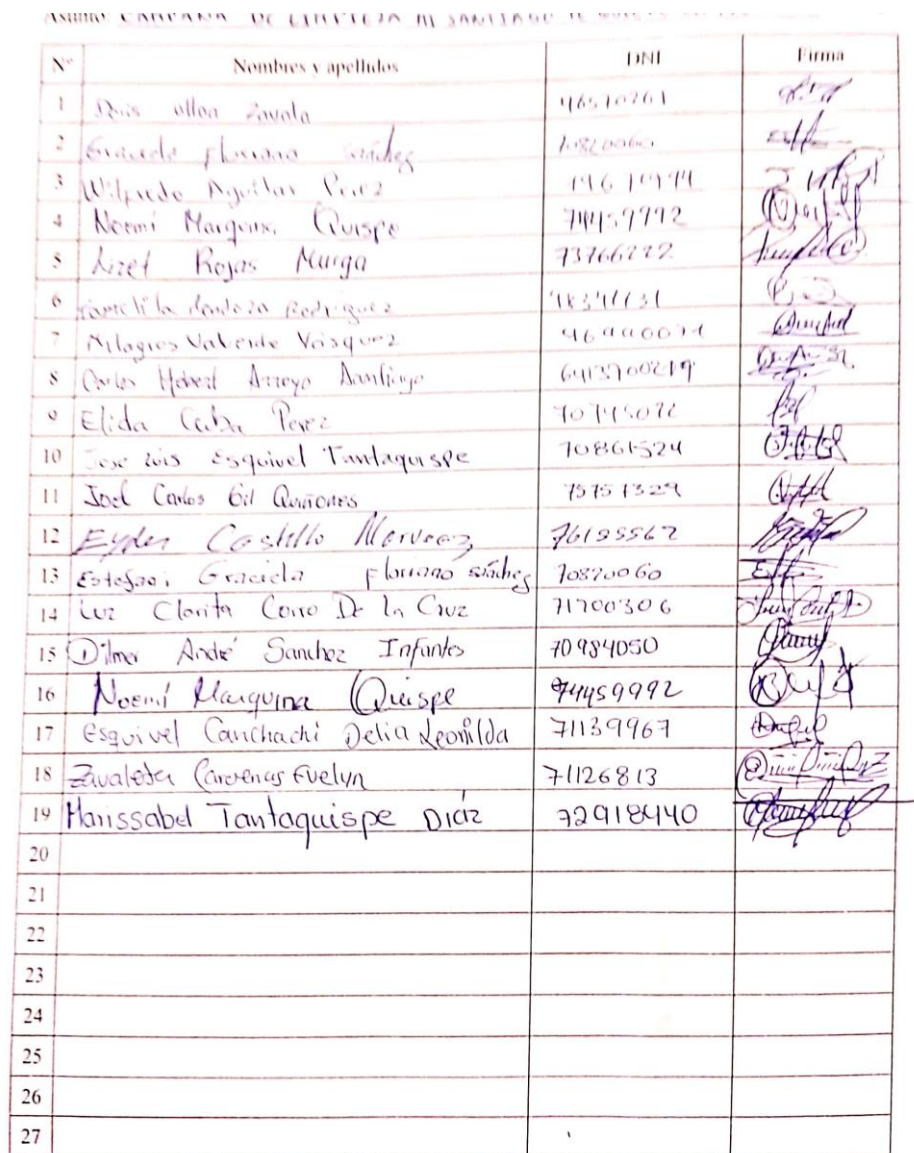 Asunto: CAMPAÑA DE LIMPIEZA MI SANTIAGO TE QUIERO
N° Nombres y apellidos DNI Firma
1 Luis Ulloa Zavala 46570261
2 Graciela Floriano Sánchez 70820060
3 Wilfredo Aguilar Perez
4 Noemí Marquina Quispe 74459992
5 Lizet Rojas Murga 73766222
6 Mendoza Rodriguez
7 Milagros Valverde Vásquez
8 Carlos Hebert Arroyo Santiago
9 Elida Caba Perez 70745072
10 Jose Luis Esquivel Tantaquispe 70861524
11 Joel Carlos Gil Quiñones 75751329
12 Eyder Castillo 76195562
13 Estefani Graciela Floriano Sánchez 70820060
14 Luz Clarita Corro De la Cruz 71700306
15 Dilmer André Sanchez Infantes 70984050
16 Noemí Marquina Quispe 74459992
17 Esquivel Canchachi Delia Leonilda 71139967
18 Zavaleta Carvenas Evelyn 71126813
19 Marissabel Tantaquispe Diáz 72918440
20
21
22
23
24
25
26
27